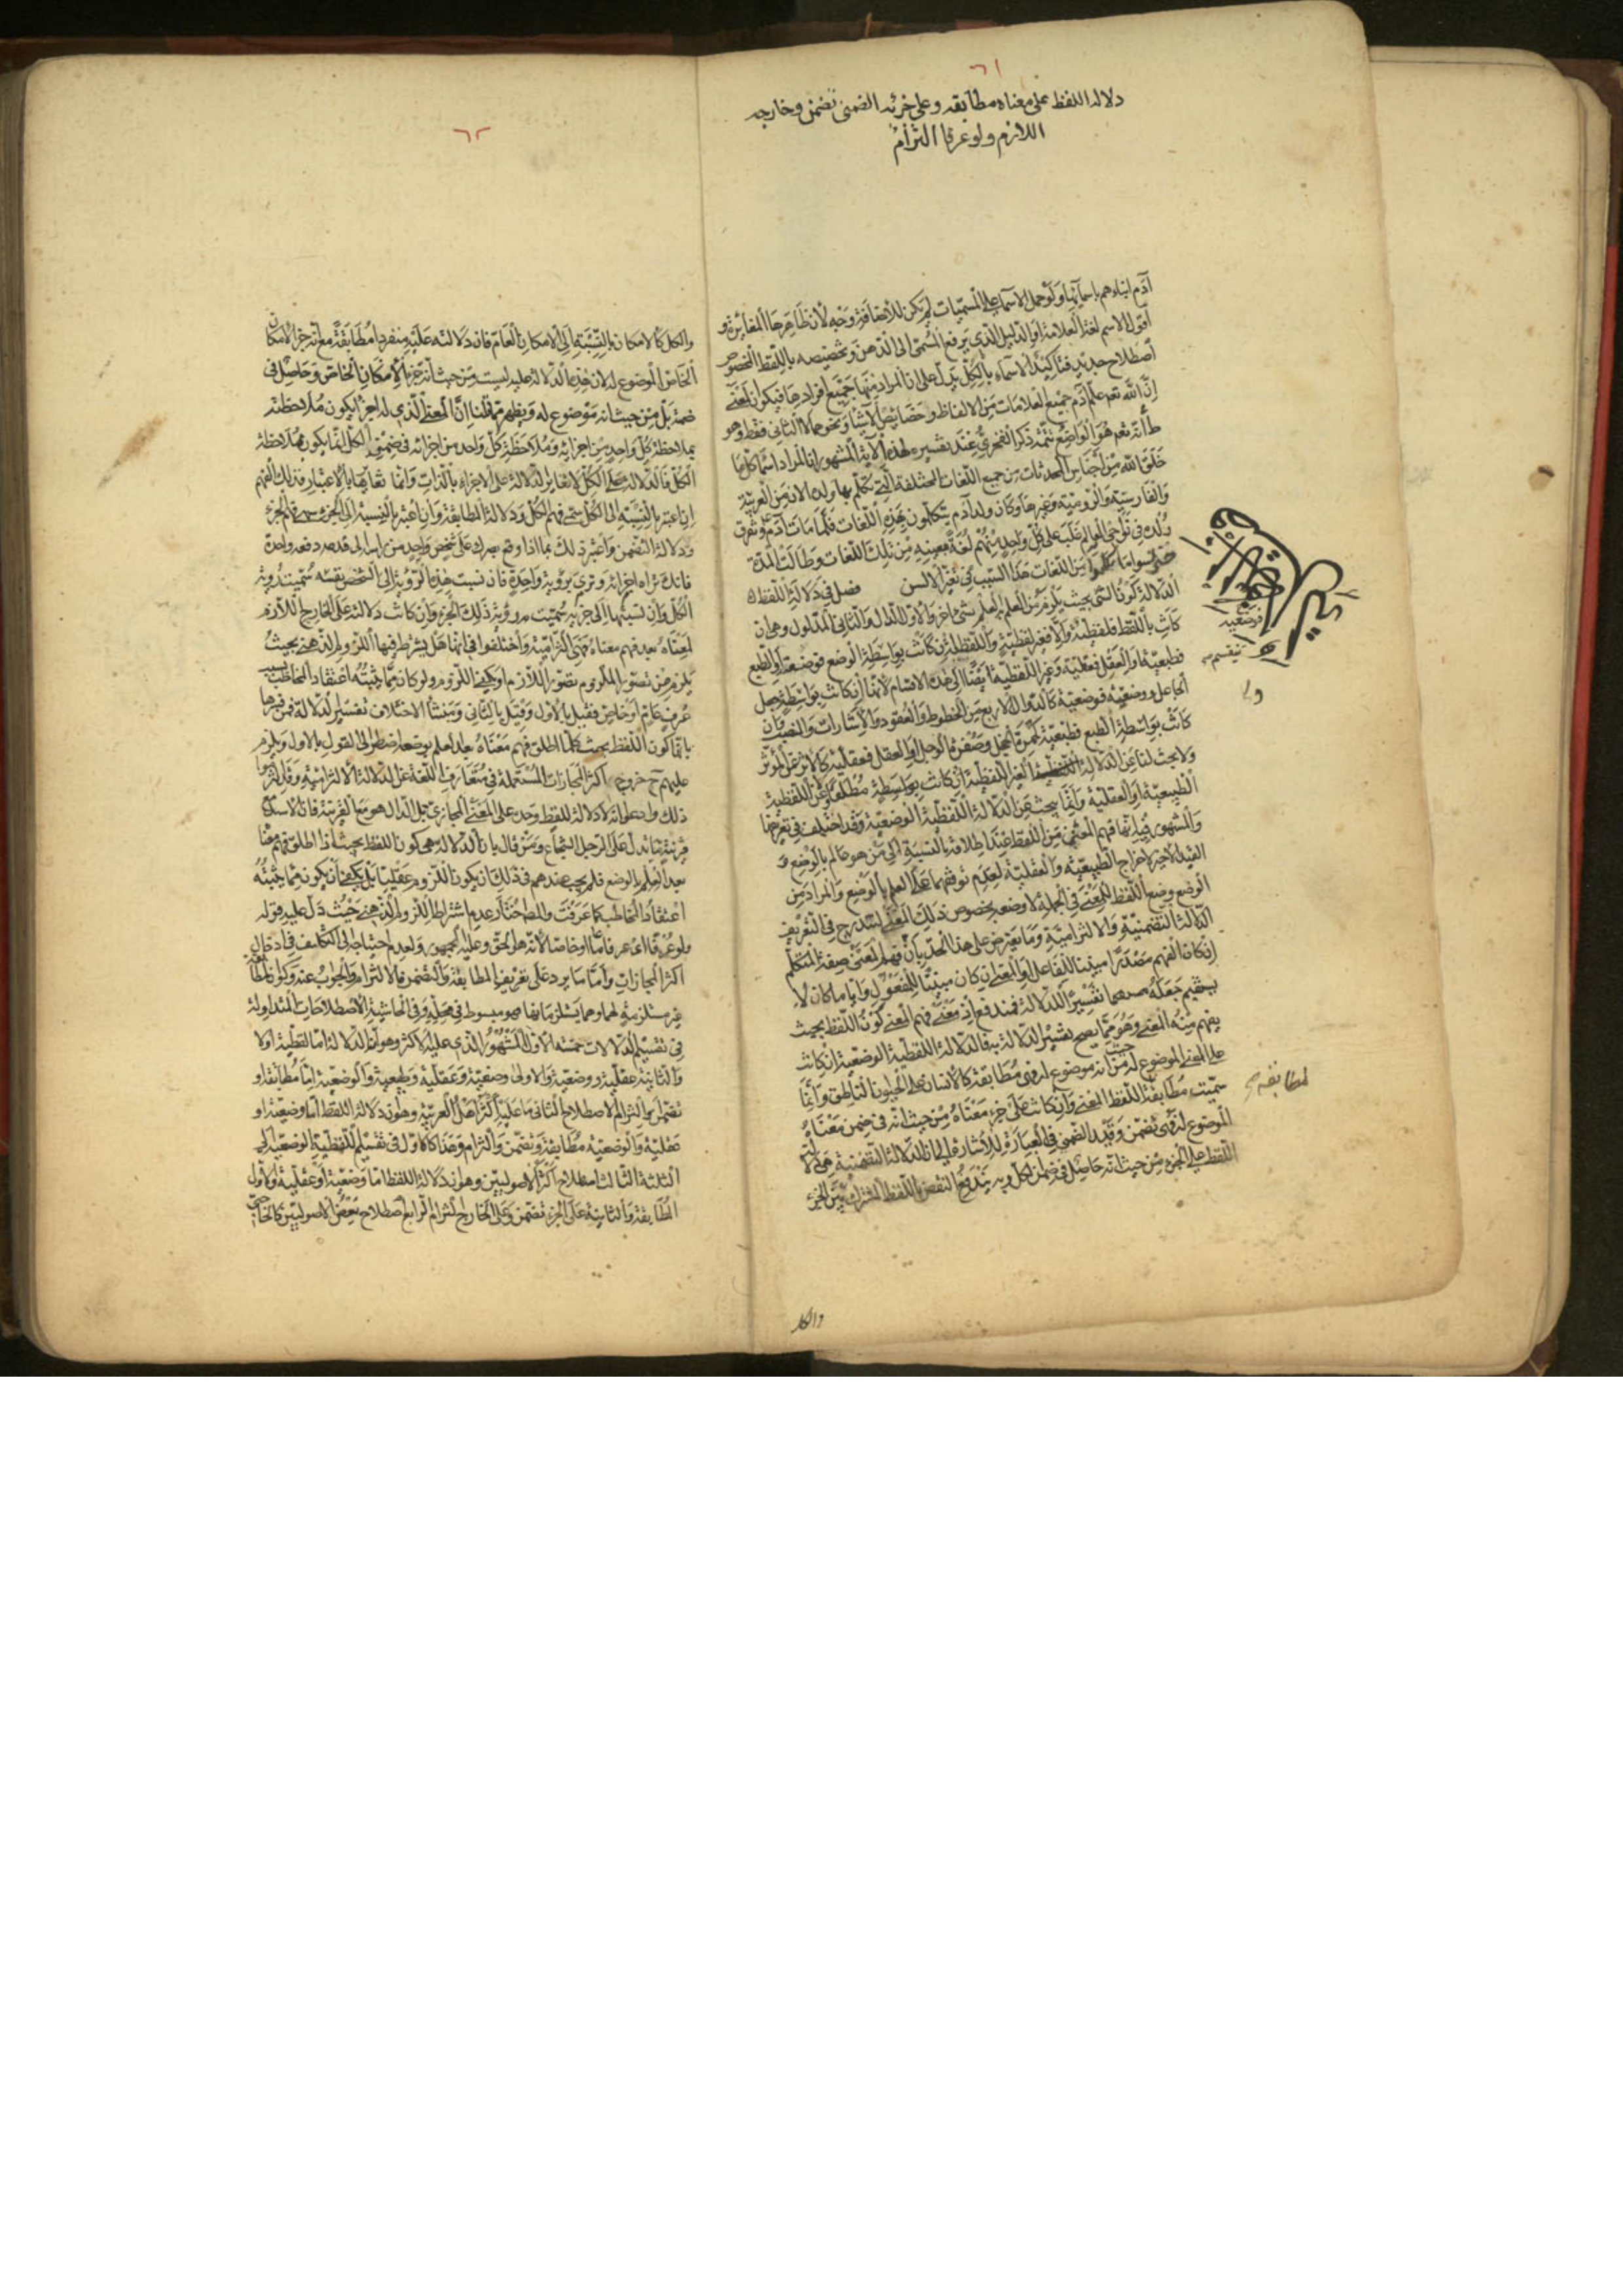 ٦١
دلالة اللفظ على معناه مطابقه وعلى جزئه الضمنى تضمن وخارجه
اللازم ولو عرفا التزام
آدم انبئهم باسمائهم ولو حمل الاسماء على المسميات لم يكن للاضافة وجه لان ظاهرها المغايرة و
اقول الاسم لغة العلامة او الدليل الذى يرفع المسمى الى الذهن وتخصيصه باللفظ المخصوص
اصطلاح جديد فتاكيد الاسماء بالكل يدل على ان المراد منها جميع افرادها فيكون المعنى
ان الله تعم علم آدم جميع العلامات من الالفاظ وخصائص الاشيا ونحوهما لا الثانى فقط وهو
انه تعم هو الواضع تتمة ذكر الفخرى عند تفسير هذه الآية المشهور ان المراد اسما كل ما
خلق الله من اجناس المحدثات من جميع اللغات المختلفة التى تكلم بها ولده الان من العربية
والفارسية والرومية وغيرها وكان ولد آدم يتكلمون بهذه اللغات فلما مات آدم وتفرق
ولده فى نواحى العالم غلب على كل واحد منهم لغة معينه من تلك اللغات وطالت المدة
من اللغات هذا السبب فى تغير الالسن فصل فى دلالة اللفظ
الدلالة كون الشئ بحيث يلزم من العلم به العلم بشئ اخر والاول الدال والثانى المدلول وهى ان
كانت باللفظ فلفظية والا فغير لفظية واللفظية ان كانت بواسطة الوضع فوضعية او الطبع
فطبعية او العقل فعقلية وغير اللفظية ايضا الى هذه الاقسام لانها ان كانت بواسطة جعل
الجاعل ووضعه فوضعية كالدوال الاربع من الخطوط والعقود والاشارات والنصب وان
كانت بواسطة الطبع فطبعية كحمرة الخجل وصفرة الوجل او العقل فعقلية كالاثر على المؤثر
ولا بحث لنا عن الدلالة الغير اللفظية ان كانت بواسطة مطلقا وعن اللفظية
الطبيعية او العقلية وانما يبحث عن الدلالة اللفظية الوضعية وقد اختلف فى تعريفها
والمشهور فيه انها فهم المعنى من اللفظ عند اطلاقه بالنسبة الى من هو عالم بالوضع و
القيد الاخير لاخراج الطبيعية والعقلية لعدم توقفهما على العلم بالوضع والمراد من
الوضع وضع اللفظ للمعنى فى الجملة لا وضعه بخصوص ذلك المعنى ليندرج فى التعريف
الدلالة التضمنية والالتزامية وما يعترض على هذا الحد بان فهم المعنى صفة المتكلم
ان كان الفهم مصدرا مبنيا للفاعل او المعنى ان كان مبنيا للمفعول وايا ما كان لا
يستقيم جعله تفسيرا للدلالة فمندفع اذ معنى فهم المعنى كون اللفظ بحيث
يفهم منه المعنى وهو مما يصح تفسير الدلالة به فالدلالة اللفظية الوضعية ان كانت
على المعنى الموضوع له من حيث انه موضوع له فهى مطابقة كالانسان على الحيوان الناطق وانما
سميت مطابقة اللفظ المعنى وان كانت على جزء معناه من حيث انه فى ضمن معناه
الموضوع له فهى تضمن وقيد الضمنى فى العبارة للاشارة الى ان الدلالة التضمنية هى دلالة
اللفظ على الجزء من حيث انه حاصل فى ضمن الكل وبه يندفع النقض باللفظ المشترك بين الجزء
فوضعيه
تنقسم
ولد
لمطابقة
والكل
٦٢
والكل كالامكان بالنسبة الى الامكان العام فان دلالته عليه منفردا مطابقة مع انه جزء الامكان
الخاص الموضوع له لان هذه الدلالة عليه ليست من حيث انه جزء الامكان الخاص وحاصل فى
ضمنه بل من حيث انه موضوع له ويظهر مما قلنا ان المعنى الذى له اجزا يكون ملاحظته
بملاحظة كل واحد من اجزائه وملاحظة كل واحد من اجزائه فى ضمن الكل انما يكون بملاحظة
الكل فالدلالة على الكل لا تغاير الدلالة على الاجزاء بالذات وانما تغايرها بالاعتبار فذلك الفهم
ان اعتبر بالنسبة الى الكل سمى فهم الكل ودلالة المطابقة وان اعتبر بالنسبة الى الجزء سمى فهم الجزء
ودلالة التضمن واعتبر ذلك بما اذا وقع بصرك على شخص واحد من راسه الى قدمه دفعة واحدة
فانك تراه اجزائه وترى برؤية واحدة فان نسبت هذه الرؤية الى الشخص نفسه سميت رؤية
الكل وان نسبتها الى جزئه سميت رؤية ذلك الجزء وان كانت دلالته على الخارج اللازم
لمعناه بعد فهم معناه فهى التزامية واختلفوا فى انها هل يشترط فيها اللزوم الذهنى بحيث
يلزم من تصور الملزوم تصور اللازم او يكفى اللزوم ولو كان مما يثبته اعتقاد المخاطب بسبب
عرف عام او خاص فقيل بالاول وقيل بالثانى ومنشأ الاختلاف تفسير الدلالة فمن فسرها
بانها كون اللفظ بحيث كلما اطلق فهم معناه بعد العلم بوضعه اضطر الى القول بالاول ويلزم
عليهم ح خروج اكثر المجازات المستعملة فى متعارف اللغة عن الدلالة الالتزامية وقد التزموا
ذلك وادعوا انه لا دلالة للفظ وحده على المعنى المجازى بل الدال هو مع القرينة فان الاسد مع
قرينته يدل على الرجل الشجاع ومن قال بان الدلالة هى كون اللفظ بحيث اذا اطلق فهم معناه
بعد العلم بالوضع فلم يجب عندهم فى ذلك ان يكون اللزوم عقليا بل يكفى ان يكون مما يثبته
اعتقاد المخاطب كما عرفت والمص اختار عدم اشتراط اللزوم الذهنى حيث دل عليه قوله
ولو عرفا اى عرفا عاما او خاصا لانه هو الحق وعليه الجمهور ولعدم احتياجه الى التكلف فى ادخال
اكثر المجازات واما ما يرد على تعريف المطابقة والتضمن فالالتزام والجواب عنه وكون المطابقة
غير مستلزمة لهما وهما يستلزمانها فهو مبسوط فى محله وفى الحاشية الاصطلاحات المتداولة
فى تقسيم الدلالات خمسة الاول المشهور الذى عليه الاكثر وهو ان الدلالة اما لفظية او لا
والثانية عقلية ووضعية والاولى وضعية وعقلية وطبعية والوضعية اما مطابقة او
تضمن او التزام الاصطلاح الثانى ما عليه اكثر اهل العربية وهو ان دلالة اللفظ اما وضعية او
عقلية والوضعية مطابقة وتضمن والتزام وهذا كالاول فى تقسيم اللفظية الوضعية الى
الثلثة الثالث اصطلاح اكثر الاصوليين وهو ان دلالة اللفظ اما وضعية او عقلية والاول
المطابقة والثانية على الجزء تضمن وعلى الخارج التزام الرابع اصطلاح بعض الاصوليين كالحاجبى